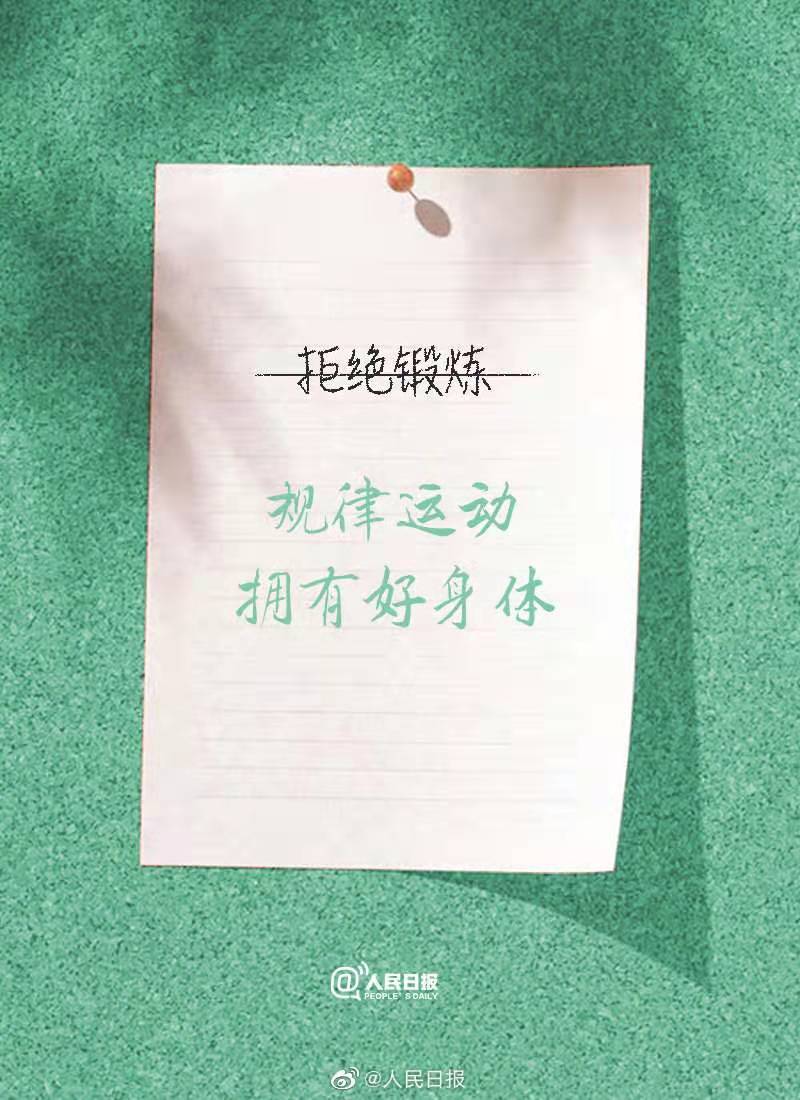 拒绝锻炼
规律运动
拥有好身体
@人民日报
PEOPLE'S DAILY
@人民日报